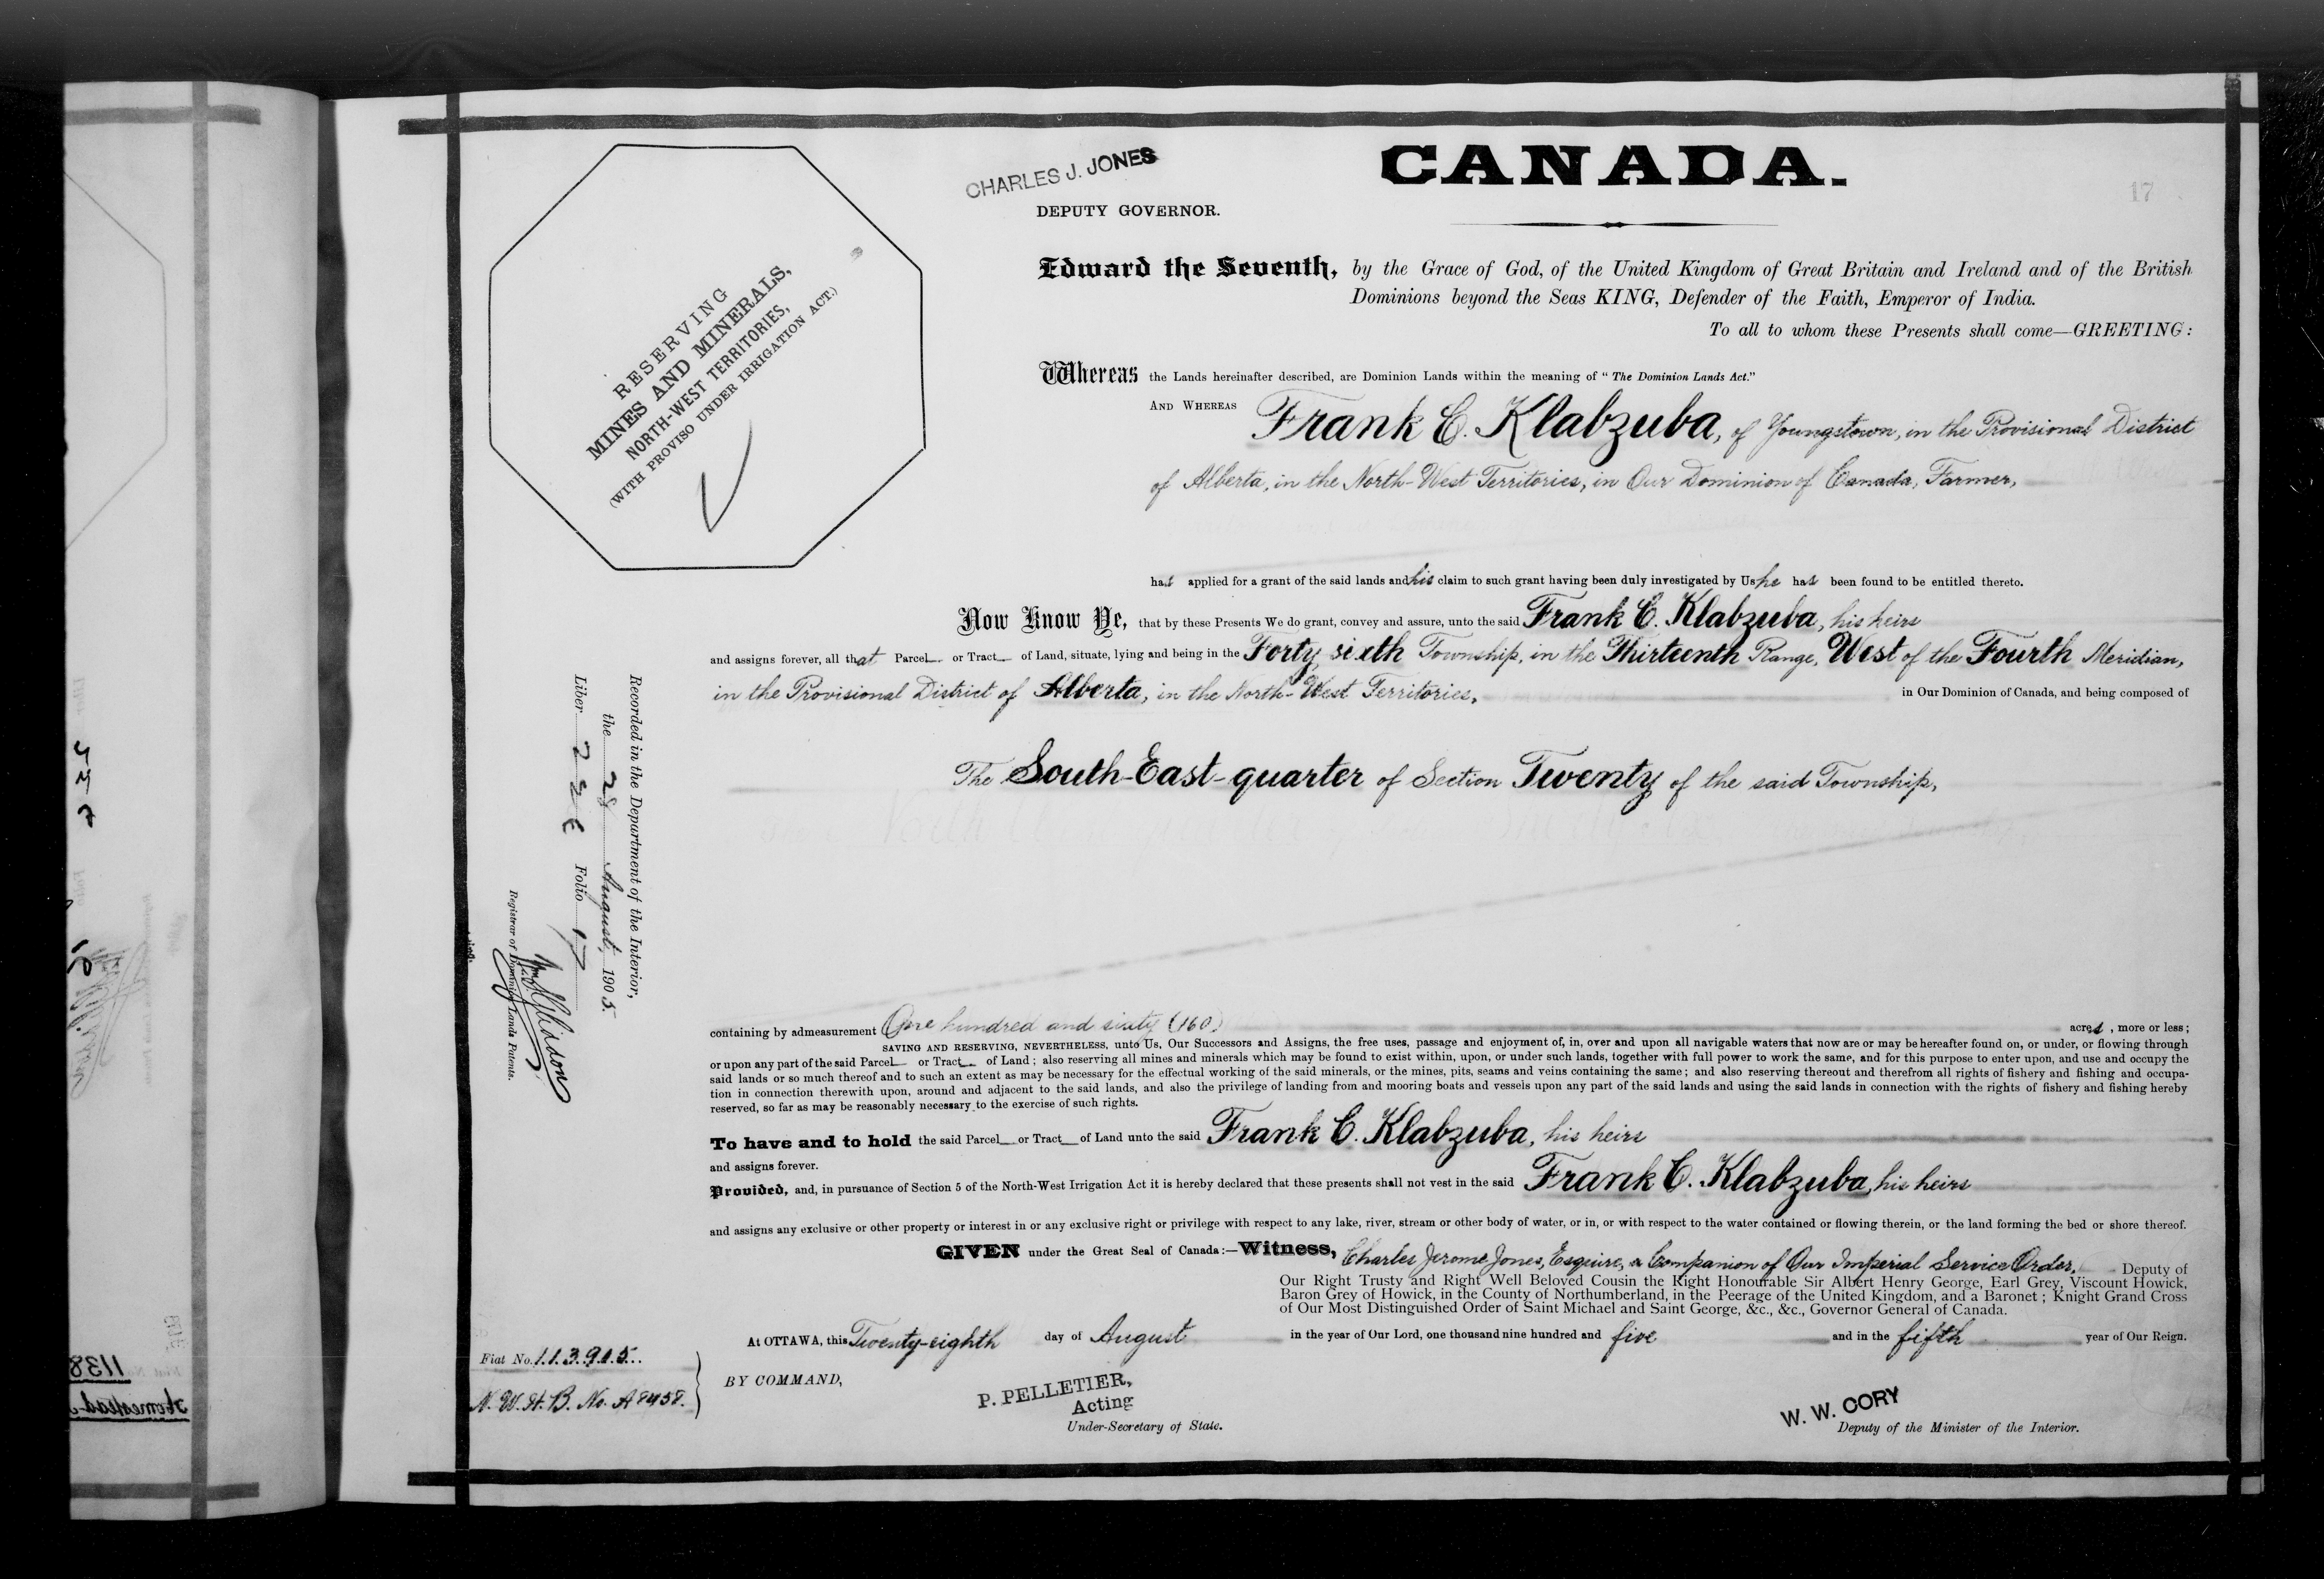 CHARLES J. JONES
DEPUTY GOVERNOR.
CANADA.
17
RESERVING
MINES AND MINERALS,
NORTH-WEST TERRITORIES,
(WITH PROVISO UNDER IRRIGATION ACT.)
Edward the Seventh, by the Grace of God, of the United Kingdom of Great Britain and Ireland and of the British
Dominions beyond the Seas KING, Defender of the Faith, Emperor of India.
To all to whom these Presents shall come—GREETING:
Whereas the Lands hereinafter described, are Dominion Lands within the meaning of "The Dominion Lands Act."
AND WHEREAS Frank C. Klabzuba, of Youngstown, in the Provisional District
of Alberta, in the North-West Territories, in Our Dominion of Canada, Farmer,
has applied for a grant of the said lands and his claim to such grant having been duly investigated by Us he has been found to be entitled thereto.
Now Know Ye, that by these Presents We do grant, convey and assure, unto the said Frank C. Klabzuba, his heirs
and assigns forever, all that Parcel or Tract of Land, situate, lying and being in the Forty sixth Township, in the Thirteenth Range, West of the Fourth Meridian,
in the Provisional District of Alberta, in the North-West Territories, in Our Dominion of Canada, and being composed of
The South-East-quarter of Section Twenty of the said Township,
containing by admeasurement One hundred and sixty (160) acres, more or less;
SAVING AND RESERVING, NEVERTHELESS, unto Us, Our Successors and Assigns, the free uses, passage and enjoyment of, in, over and upon all navigable waters that now are or may be hereafter found on, or under, or flowing through
or upon any part of the said Parcel or Tract of Land; also reserving all mines and minerals which may be found to exist within, upon, or under such lands, together with full power to work the same, and for this purpose to enter upon, and use and occupy the
said lands or so much thereof and to such an extent as may be necessary for the effectual working of the said minerals, or the mines, pits, seams and veins containing the same; and also reserving thereout and therefrom all rights of fishery and fishing and occupa-
tion in connection therewith upon, around and adjacent to the said lands, and also the privilege of landing from and mooring boats and vessels upon any part of the said lands and using the said lands in connection with the rights of fishery and fishing hereby
reserved, so far as may be reasonably necessary to the exercise of such rights.
To have and to hold the said Parcel or Tract of Land unto the said Frank C. Klabzuba, his heirs
and assigns forever.
Provided, and, in pursuance of Section 5 of the North-West Irrigation Act it is hereby declared that these presents shall not vest in the said Frank C. Klabzuba, his heirs
and assigns any exclusive or other property or interest in or any exclusive right or privilege with respect to any lake, river, stream or other body of water, or in, or with respect to the water contained or flowing therein, or the land forming the bed or shore thereof.
GIVEN under the Great Seal of Canada:—Witness, Charles Jerome Jones, Esquire, a Companion of Our Imperial Service Order, Deputy of
Our Right Trusty and Right Well Beloved Cousin the Right Honourable Sir Albert Henry George, Earl Grey, Viscount Howick,
Baron Grey of Howick, in the County of Northumberland, in the Peerage of the United Kingdom, and a Baronet; Knight Grand Cross
of Our Most Distinguished Order of Saint Michael and Saint George, &c., &c., Governor General of Canada.
At OTTAWA, this Twenty-eighth day of August in the year of Our Lord, one thousand nine hundred and five and in the fifth year of Our Reign.
BY COMMAND,
P. PELLETIER,
Acting
Under-Secretary of State.
W. W. CORY
Deputy of the Minister of the Interior.
Fiat No. 113915.
N. W. H. B. No. A 8458.
Recorded in the Department of the Interior,
the 28 August, 1905.
Liber Folio 17
Registrar of Dominion Lands Patents.
1138
Homestead